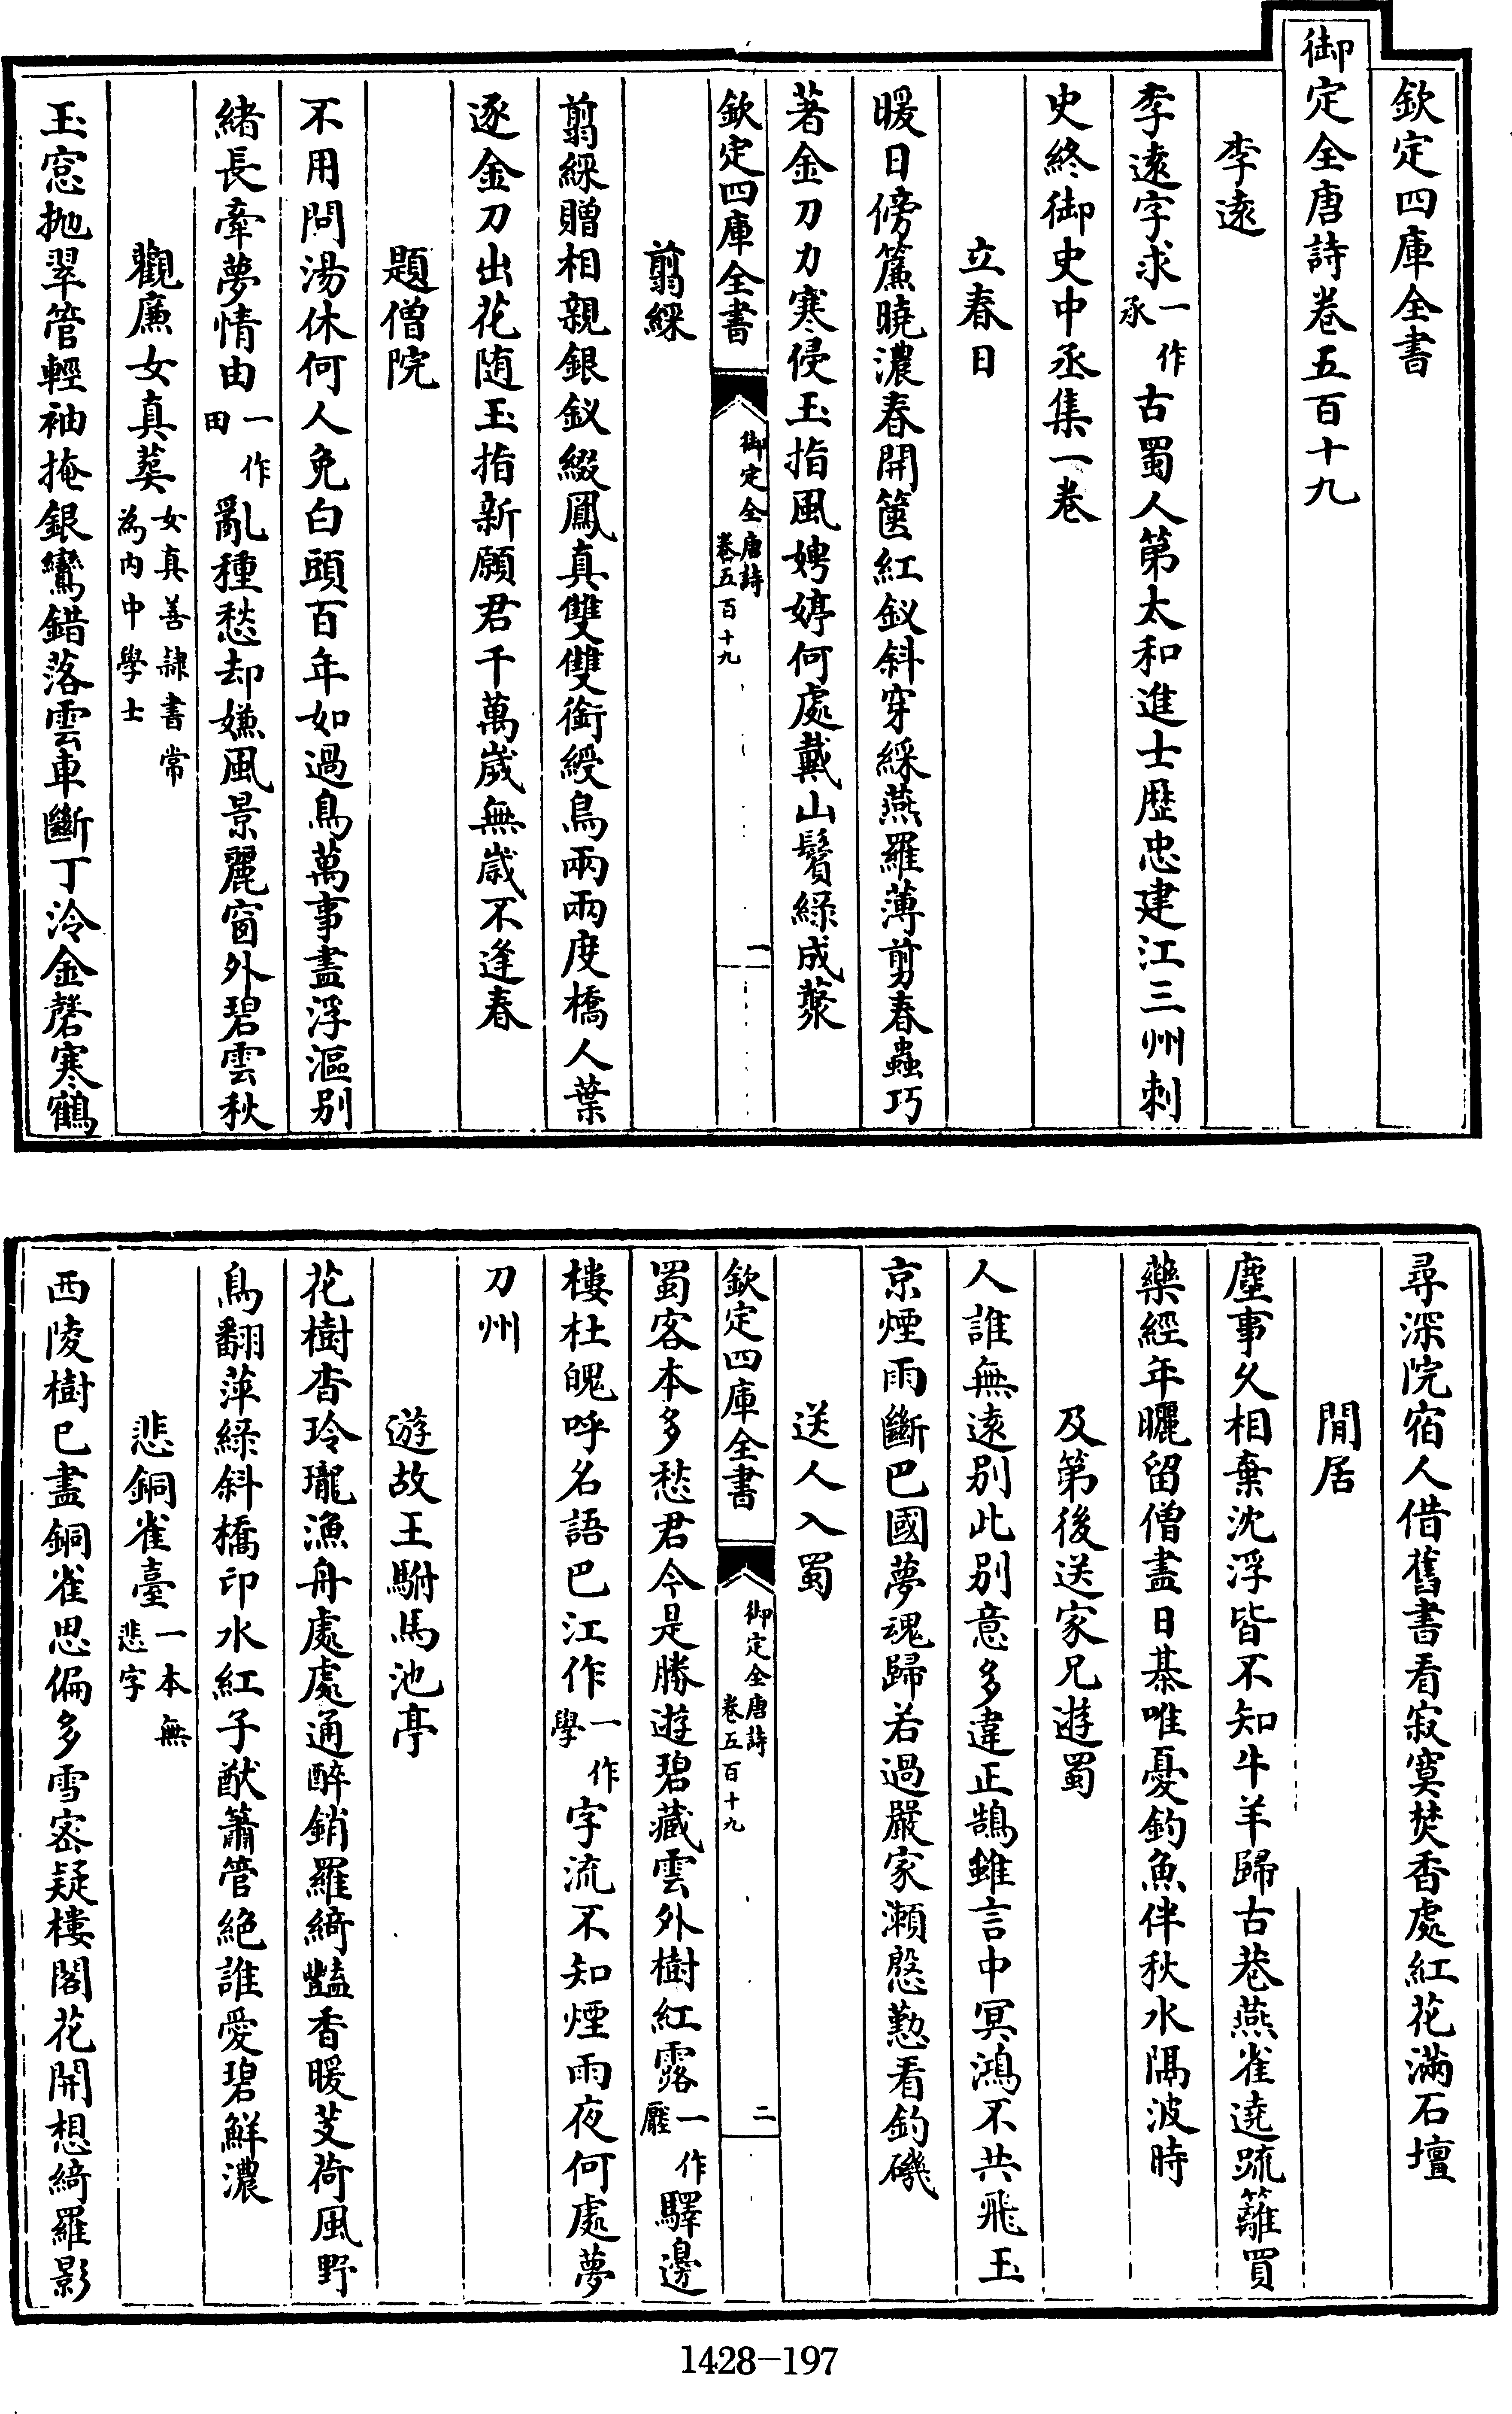 欽定四庫全書
御定全唐詩卷五百十九
李遠
李遠字求一作承古蜀人第太和進士歷忠建江三州刺
史終御史中丞集一卷
立春日
暖日傍簾曉濃春開篋紅釵斜穿綵燕羅薄剪春蟲巧
著金刀力寒侵玉指風娉婷何處戴山鬢綠成叢
欽定四庫全書
御定全唐詩
卷五百十九
一
翦綵
翦綵贈相親銀釵綴鳳真雙雙銜綬鳥兩兩度橋人葉
逐金刀出花隨玉指新願君千萬歲無歲不逢春
題僧院
不用問湯休何人免白頭百年如過鳥萬事盡浮漚別
緒長牽夢情由一作田亂種愁却嫌風景麗窗外碧雲秋
觀廉女真葬女真善隸書常為內中學士
玉窓抛翠管輕袖掩銀鸞錯落雲車斷丁泠金磬寒鶴
尋深院宿人借舊書看寂寞焚香處紅花滿石壇
閒居
塵事久相棄沈浮皆不知牛羊歸古巷燕雀遶疏籬買
藥經年曬留僧盡日棊唯憂釣魚伴秋水隔波時
及第後送家兄遊蜀
人誰無遠別此別意多違正鵠雖言中冥鴻不共飛玉
京煙雨斷巴國夢魂歸若過嚴家瀨慇懃看釣磯
送人入蜀
欽定四庫全書
御定全唐詩
卷五百十九
二
蜀客本多愁君今是勝遊碧藏雲外樹紅露一作壓驛邊
樓杜魄呼名語巴江作一作學字流不知煙雨夜何處夢
刀州
遊故王駙馬池亭
花樹杳玲瓏漁舟處處通醉銷羅綺豔香暖芰荷風野
鳥翻萍綠斜橋印水紅子猷簫管絕誰愛碧鮮濃
悲銅雀臺一本無悲字
西陵樹已盡銅雀思偏多雪密疑樓閣花開想綺羅影
1428-197